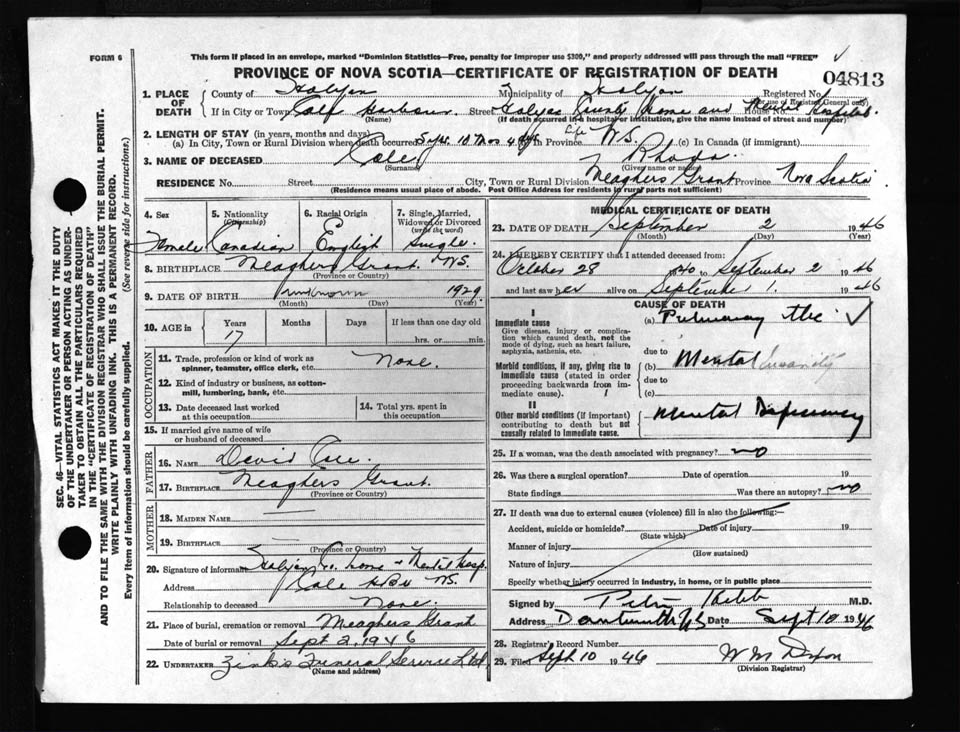 FORM 6
This form if placed in an envelope, marked "Dominion Statistics—Free, penalty for improper use $300," and properly addressed will pass through the mail "FREE"
PROVINCE OF NOVA SCOTIA—CERTIFICATE OF REGISTRATION OF DEATH
04813
SEC. 46—VITAL STATISTICS ACT MAKES IT THE DUTY
OF THE UNDERTAKER OR PERSON ACTING AS UNDER-
TAKER TO OBTAIN ALL THE PARTICULARS REQUIRED
IN THE "CERTIFICATE OF REGISTRATION OF DEATH"
AND TO FILE THE SAME WITH THE DIVISION REGISTRAR WHO SHALL ISSUE THE BURIAL PERMIT.
WRITE PLAINLY WITH UNFADING INK. THIS IS A PERMANENT RECORD.
Every item of information should be carefully supplied. (See reverse side for instructions.)
1. PLACE OF DEATH
County of Halifax Municipality of Halifax Registered No.
(For use of Registrar General only)
If in City or Town Cole Harbour Street Halifax County Home and Mental Hospital House No.
(Name) (If death occurred in a hospital or institution, give the name instead of street and number)
2. LENGTH OF STAY (in years, months and days)
(a) In City, Town or Rural Division where death occurred 5 yrs 10 mos 4 dys (b) In Province Life N.S. (c) In Canada (if immigrant)
3. NAME OF DECEASED Cole Rhoda
(Surname) (Given name or names)
RESIDENCE No. Street City, Town or Rural Division Meaghers Grant Province Nova Scotia
(Residence means usual place of abode. Post Office Address for residents in rural parts not sufficient)
4. Sex 5. Nationality (Citizenship) 6. Racial Origin 7. Single, Married, Widowed or Divorced (write the word)
Female Canadian English Single
8. BIRTHPLACE Meaghers Grant N.S.
(Province or Country)
9. DATE OF BIRTH unknown 1929
(Month) (Day) (Year)
10. AGE in Years Months Days If less than one day old
17 hrs. or min.
OCCUPATION
11. Trade, profession or kind of work as spinner, teamster, office clerk, etc. None
12. Kind of industry or business, as cotton-mill, lumbering, bank, etc.
13. Date deceased last worked at this occupation 14. Total yrs. spent in this occupation
15. If married give name of wife or husband of deceased
FATHER
16. NAME David Cole
17. BIRTHPLACE Meaghers Grant
(Province or Country)
MOTHER
18. MAIDEN NAME —
19. BIRTHPLACE —
(Province or Country)
20. Signature of informant Halifax Co. Home + Mental Hosp.
Address Cole Hbr NS.
Relationship to deceased None
21. Place of burial, cremation or removal Meaghers Grant
Date of burial or removal Sept 2, 1946
22. UNDERTAKER Zink's Funeral Service Ltd.
(Name and address)
MEDICAL CERTIFICATE OF DEATH
23. DATE OF DEATH September 2 1946
(Month) (Day) (Year)
24. I HEREBY CERTIFY that I attended deceased from:
October 28 1940 to September 2 1946
and last saw her alive on September 1. 1946
CAUSE OF DEATH
I
Immediate cause
Give disease, injury or complication which caused death, not the mode of dying, such as heart failure, asphyxia, asthenia, etc.
(a) Pulmonary tbc
due to
Morbid conditions, if any, giving rise to immediate cause (stated in order proceeding backwards from immediate cause).
(b) Mental Insanity
due to
(c)
II
Other morbid conditions (if important) contributing to death but not causally related to immediate cause.
Mental Deficiency
25. If a woman, was the death associated with pregnancy? no
26. Was there a surgical operation? Date of operation 19
State findings Was there an autopsy? no
27. If death was due to external causes (violence) fill in also the following:
Accident, suicide or homicide? Date of injury 19
(State which)
Manner of injury
(How sustained)
Nature of injury
Specify whether injury occurred in industry, in home, or in public place
Signed by M.D.
Address Dartmouth N.S. Date Sept 10 1946
28. Registrar's Record Number
29. Filed Sept 10 1946 W M Dixon
(Division Registrar)